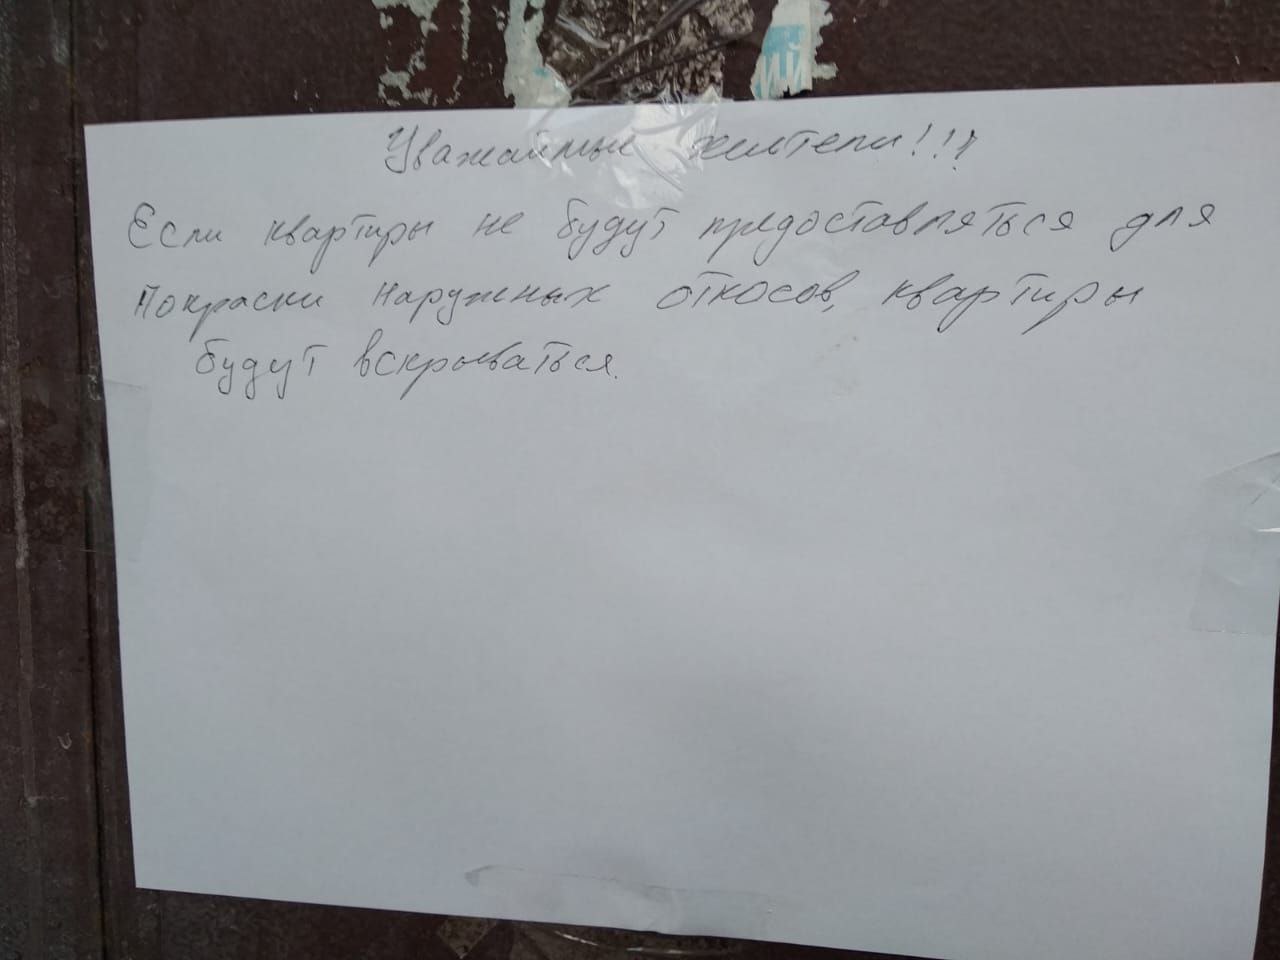 ИЙ
Уважаймые жилтели!!!
Если квартиры не будут предоставляться для
Покраски наружных откосов, квартиры
будут вскрываться.